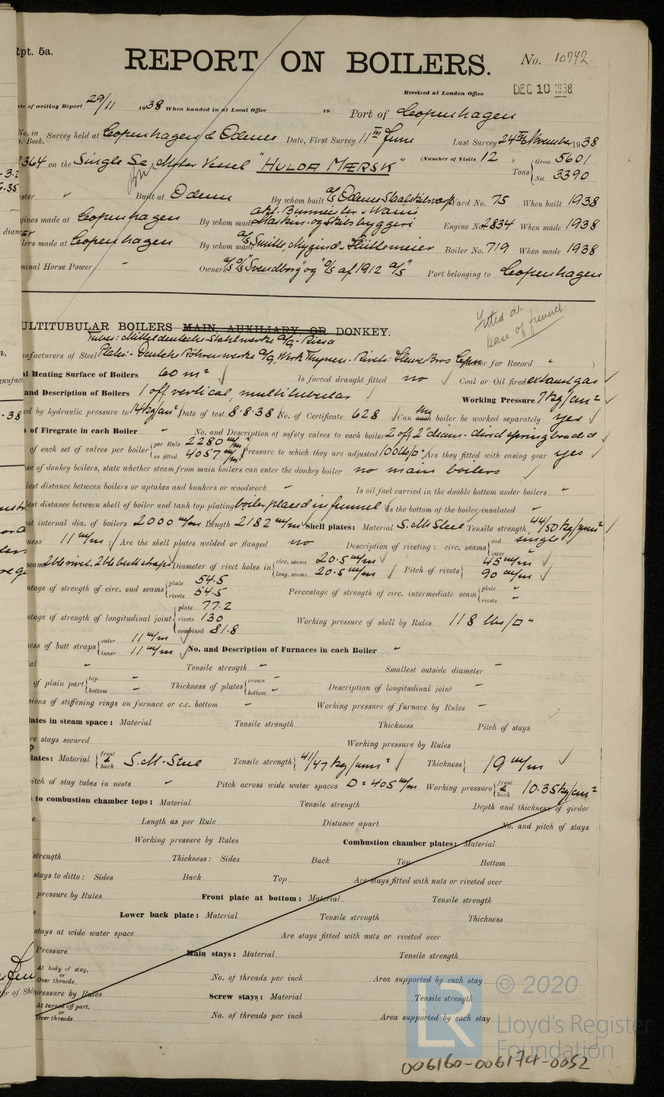 Rpt. 5a.
REPORT ON BOILERS.
No. 10742.
Received at London Office
DEC 10 1938
Date of writing Report 29/11 1938 When handed in at Local Office 19 Port of Copenhagen
No. in Book. Survey held at Copenhagen & Odense Date, First Survey 11th June Last Survey 24th November 1938
on the Single Sc. Motor Vessel "HULDA MÆRSK" (Number of Visits 12) Tons Gross 5601 Net 3390
Built at Odense By whom built A/S Odense Staalskibsværft Yard No. 75 When built 1938
Engines made at Copenhagen By whom made Akt. Burmeister & Wain's Maskin- og Skibsbyggeri Engine No. 2834 When made 1938
Boilers made at Copenhagen By whom made A/S Smith, Mygind & Hüttemeier Boiler No. 719 When made 1938
Nominal Horse Power " Owners A/S D/S "Svendborg" og D/S af 1912 A/S Port belonging to Copenhagen
Fitted at base of funnel
MULTITUBULAR BOILERS MAIN, AUXILIARY, OR DONKEY.
Tubes: Mitteldeutsche Stahlwerke A/G. Riesa
Manufacturers of Steel Plates: Deutsche Röhrenwerke A/G, Werk Thyssen. for Record "
Total Heating Surface of Boilers 60 m² Is forced draught fitted no Coal or Oil fired exhaust gas
and Description of Boilers 1 off vertical, multitubular Working Pressure 7 kg/cm²
Tested by hydraulic pressure to 14 kg/cm² Date of test 8-8-38 No. of Certificate 628 Can the boiler be worked separately yes
Area of Firegrate in each Boiler " No. and Description of safety valves to each boiler 2 off 2" diam. direct spring loaded
Area of each set of valves per boiler per Rule 2280 m/m² as fitted 4057 m/m² Pressure to which they are adjusted 100 lbs/□" Are they fitted with easing gear yes
In case of donkey boilers, state whether steam from main boilers can enter the donkey boiler no main boilers
Smallest distance between boilers or uptakes and bunkers or woodwork " Is oil fuel carried in the double bottom under boilers "
Smallest distance between shell of boiler and tank top plating boiler placed in funnel Is the bottom of the boiler insulated "
Largest internal dia. of boilers 2000 m/m Length 2182 m/m Shell plates: Material S.M. Steel Tensile strength 44/50 kg/mm²
Thickness 11 m/m Are the shell plates welded or flanged no Description of riveting: circ. seams end single inter "
Diameter of rivet holes in circ. seams 20.5 m/m long. seams 20.5 m/m Pitch of rivets 45 m/m 90 m/m
Percentage of strength of circ. end seams plate 54.5 rivets 54.5 Percentage of strength of circ. intermediate seam plate " rivets "
Percentage of strength of longitudinal joint plate 77.2 rivets 130 combined 81.8 Working pressure of shell by Rules 118 lbs/□"
Thickness of butt straps outer 11 m/m inner 11 m/m No. and Description of Furnaces in each Boiler "
Material " Tensile strength " Smallest outside diameter "
Length of plain part top " bottom " Thickness of plates crown " bottom " Description of longitudinal joint "
Dimensions of stiffening rings on furnace or c.c. bottom " Working pressure of furnace by Rules "
plates in steam space: Material Tensile strength Thickness Pitch of stays
are stays secured Working pressure by Rules
plates: Material front & back S.M. Steel Tensile strength 41/47 kg/mm² Thickness 19 m/m
pitch of stay tubes in nests " Pitch across wide water spaces D = 405 m/m Working pressure front & back 10.35 kg/cm²
to combustion chamber tops: Material Tensile strength Depth and thickness of girder
Length as per Rule Distance apart No. and pitch of stays
Working pressure by Rules Combustion chamber plates: Material
strength Thickness: Sides Back Top Bottom
stays to ditto: Sides Back Top Are stays fitted with nuts or riveted over
pressure by Rules Front plate at bottom: Material Tensile strength
Lower back plate: Material Tensile strength Thickness
stays at wide water space Are stays fitted with nuts or riveted over
Pressure Main stays: Material Tensile strength
At body of stay, or Over threads No. of threads per inch Area supported by each stay
pressure by Rules Screw stays: Material Tensile strength
At turned off part, or Over threads No. of threads per inch Area supported by each stay
LR © 2020 Lloyd's Register Foundation
006160-006174-0052